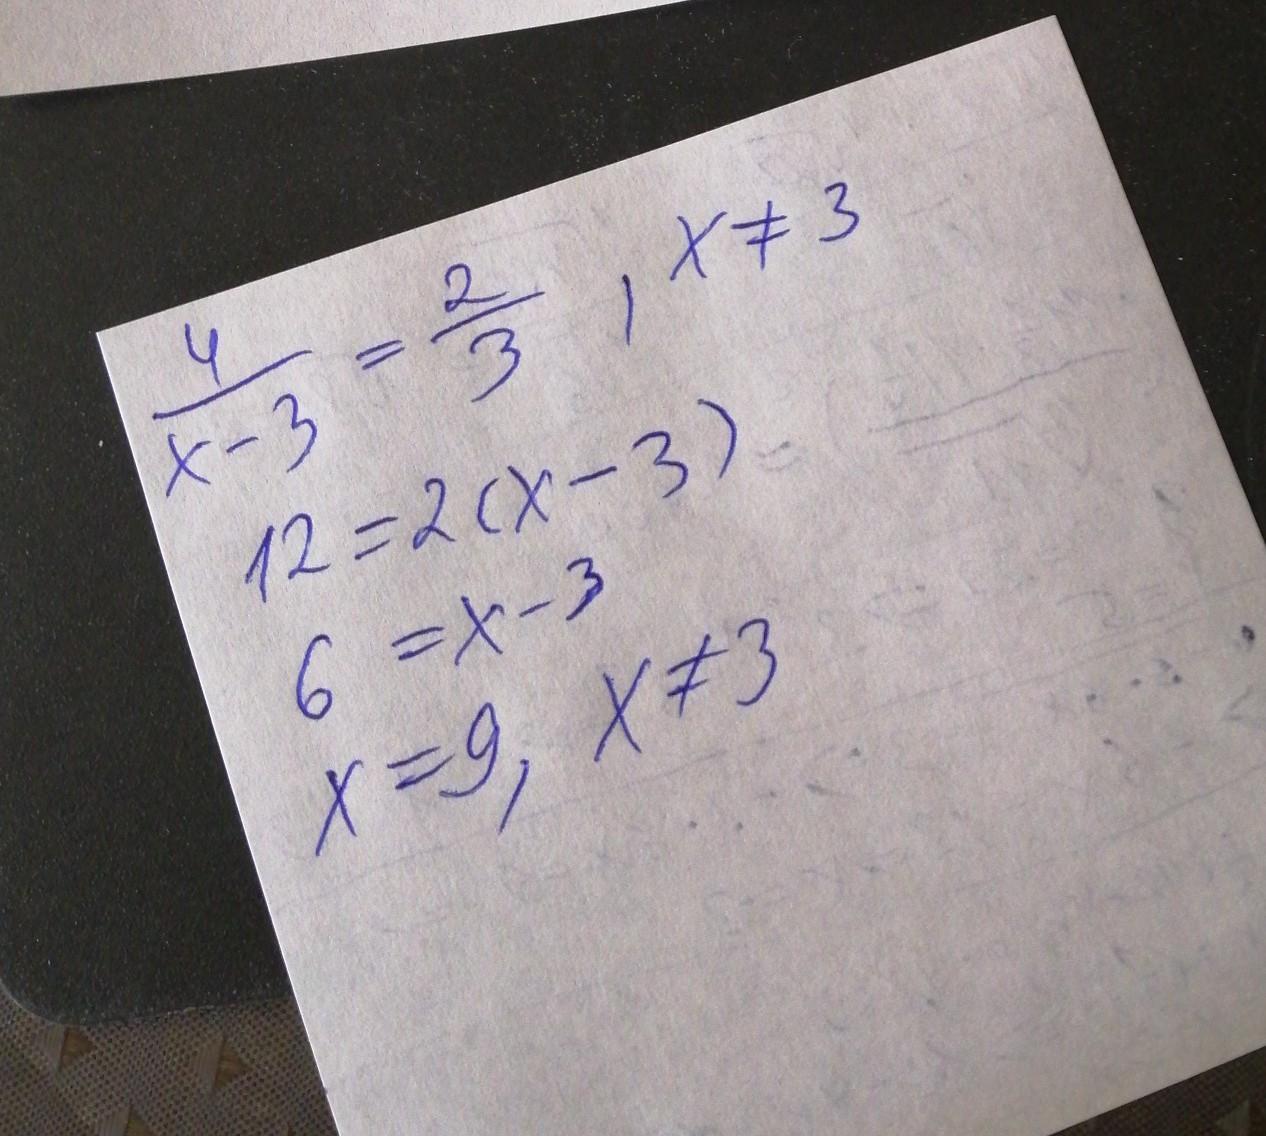 4/(x-3) = 2/3 , x ≠ 3
12 = 2(x-3)
6 = x-3
x = 9, x ≠ 3